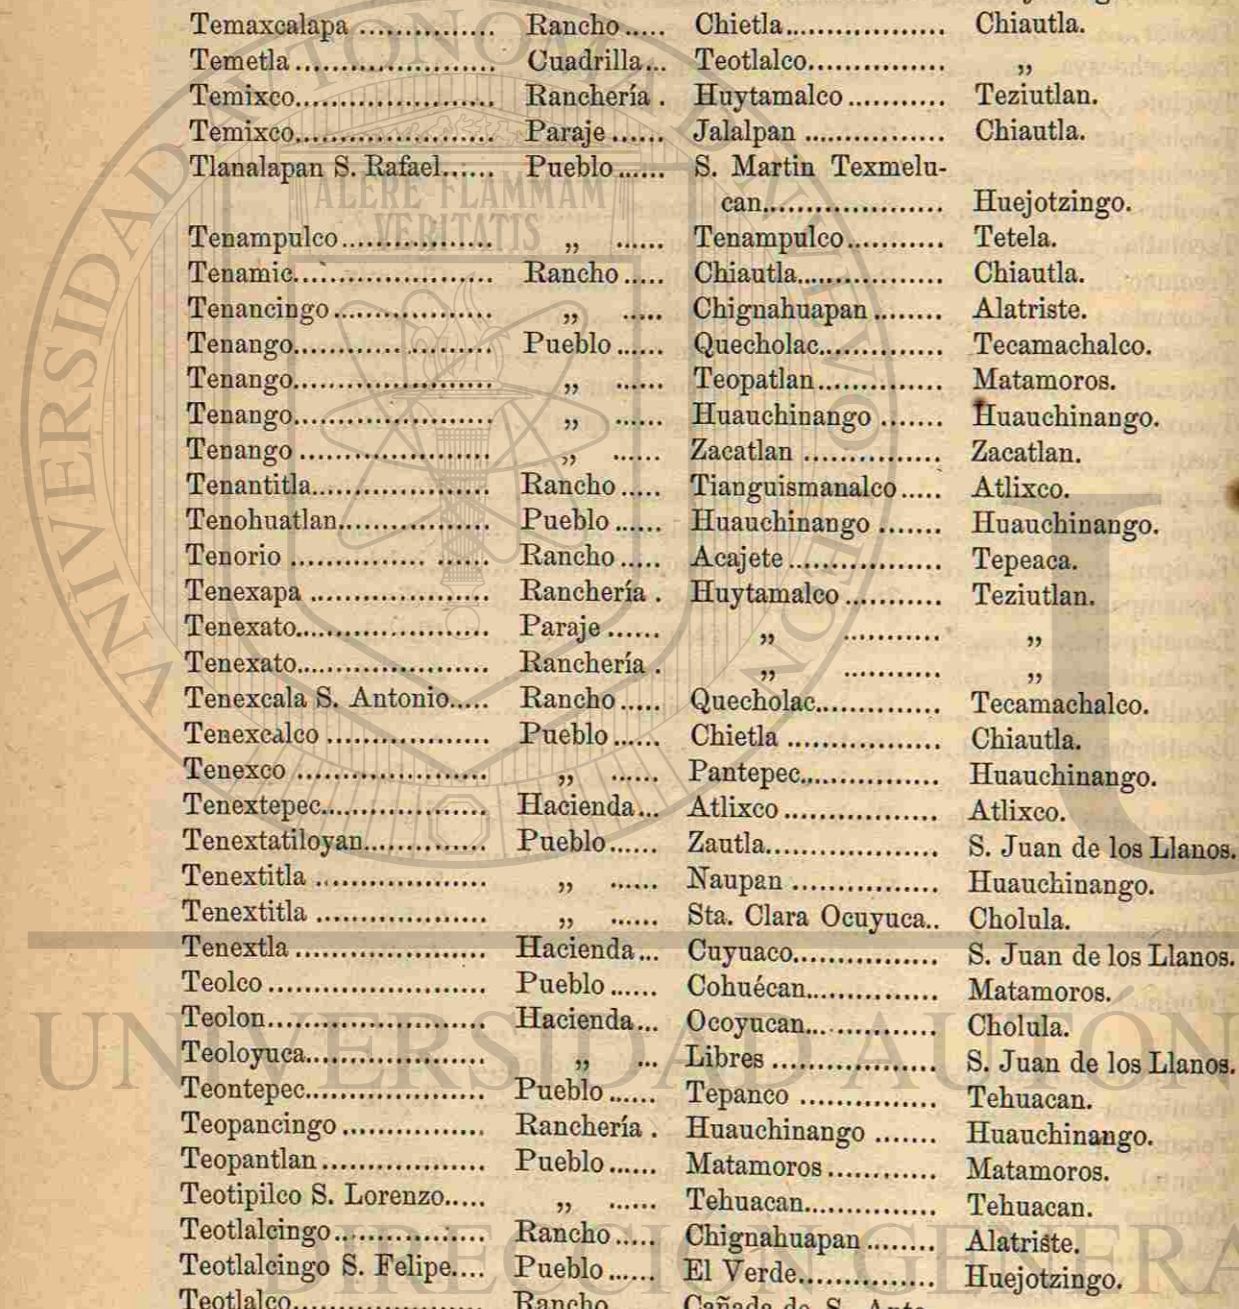 Temaxcalapa ............... Rancho..... Chietla.................. Chiautla.
Temetla....................... Cuadrilla... Teotlalco............... „
Temixco...................... Ranchería . Huytamalco........... Teziutlan.
Temixco...................... Paraje...... Jalalpan ................ Chiautla.
Tlanalapan S. Rafael...... Pueblo...... S. Martin Texmelu-
can.................... Huejotzingo.
Tenampulco................. „ ...... Tenampulco........... Tetela.
Tenamic...................... Rancho..... Chiautla................ Chiautla.
Tenancingo.................. „ ..... Chignahuapan ........ Alatriste.
Tenango...................... Pueblo...... Quecholac.............. Tecamachalco.
Tenango...................... „ ...... Teopatlan.............. Matamoros.
Tenango...................... „ ...... Huauchinango ....... Huauchinango.
Tenango ..................... „ ...... Zacatlan ............... Zacatlan.
Tenantitla.................... Rancho..... Tianguismanalco..... Atlixco.
Tenohuatlan................. Pueblo...... Huauchinango ....... Huauchinango.
Tenorio ............... ...... Rancho..... Acajete................. Tepeaca.
Tenexapa .................... Ranchería . Huytamalco........... Teziutlan.
Tenexato..................... Paraje...... „ ........... „
Tenexato..................... Ranchería . „ ........... „
Tenexcala S. Antonio..... Rancho..... Quecholac.............. Tecamachalco.
Tenexcalco .................. Pueblo...... Chietla ................. Chiautla.
Tenexco ..................... „ ...... Pantepec............... Huauchinango.
Tenextepec................... Hacienda... Atlixco................. Atlixco.
Tenextatiloyan.............. Pueblo...... Zautla................... S. Juan de los Llanos.
Tenextitla ................... „ ...... Naupan ................ Huauchinango.
Tenextitla ................... „ ...... Sta. Clara Ocuyuca.. Cholula.
Tenextla ..................... Hacienda... Cuyuaco................ S. Juan de los Llanos.
Teolco........................ Pueblo...... Cohuécan............... Matamoros.
Teolon........................ Hacienda... Ocoyucan.............. Cholula.
Teoloyuca.................... „ ... Libres .................. S. Juan de los Llanos.
Teontepec.................... Pueblo...... Tepanco ............... Tehuacan.
Teopancingo................ Ranchería . Huauchinango ....... Huauchinango.
Teopantlan.................. Pueblo...... Matamoros............ Matamoros.
Teotipilco S. Lorenzo..... „ ...... Tehuacan............... Tehuacan.
Teotlalcingo................. Rancho..... Chignahuapan........ Alatriste.
Teotlalcingo S. Felipe.... Pueblo...... El Verde............... Huejotzingo.
Teotlalco..................... Rancho Cañada de S. Anto-
UNIVERSIDAD AUTÓN
DIRECCIÓN GENERA
ALERE FLAMMAM
VERITATIS